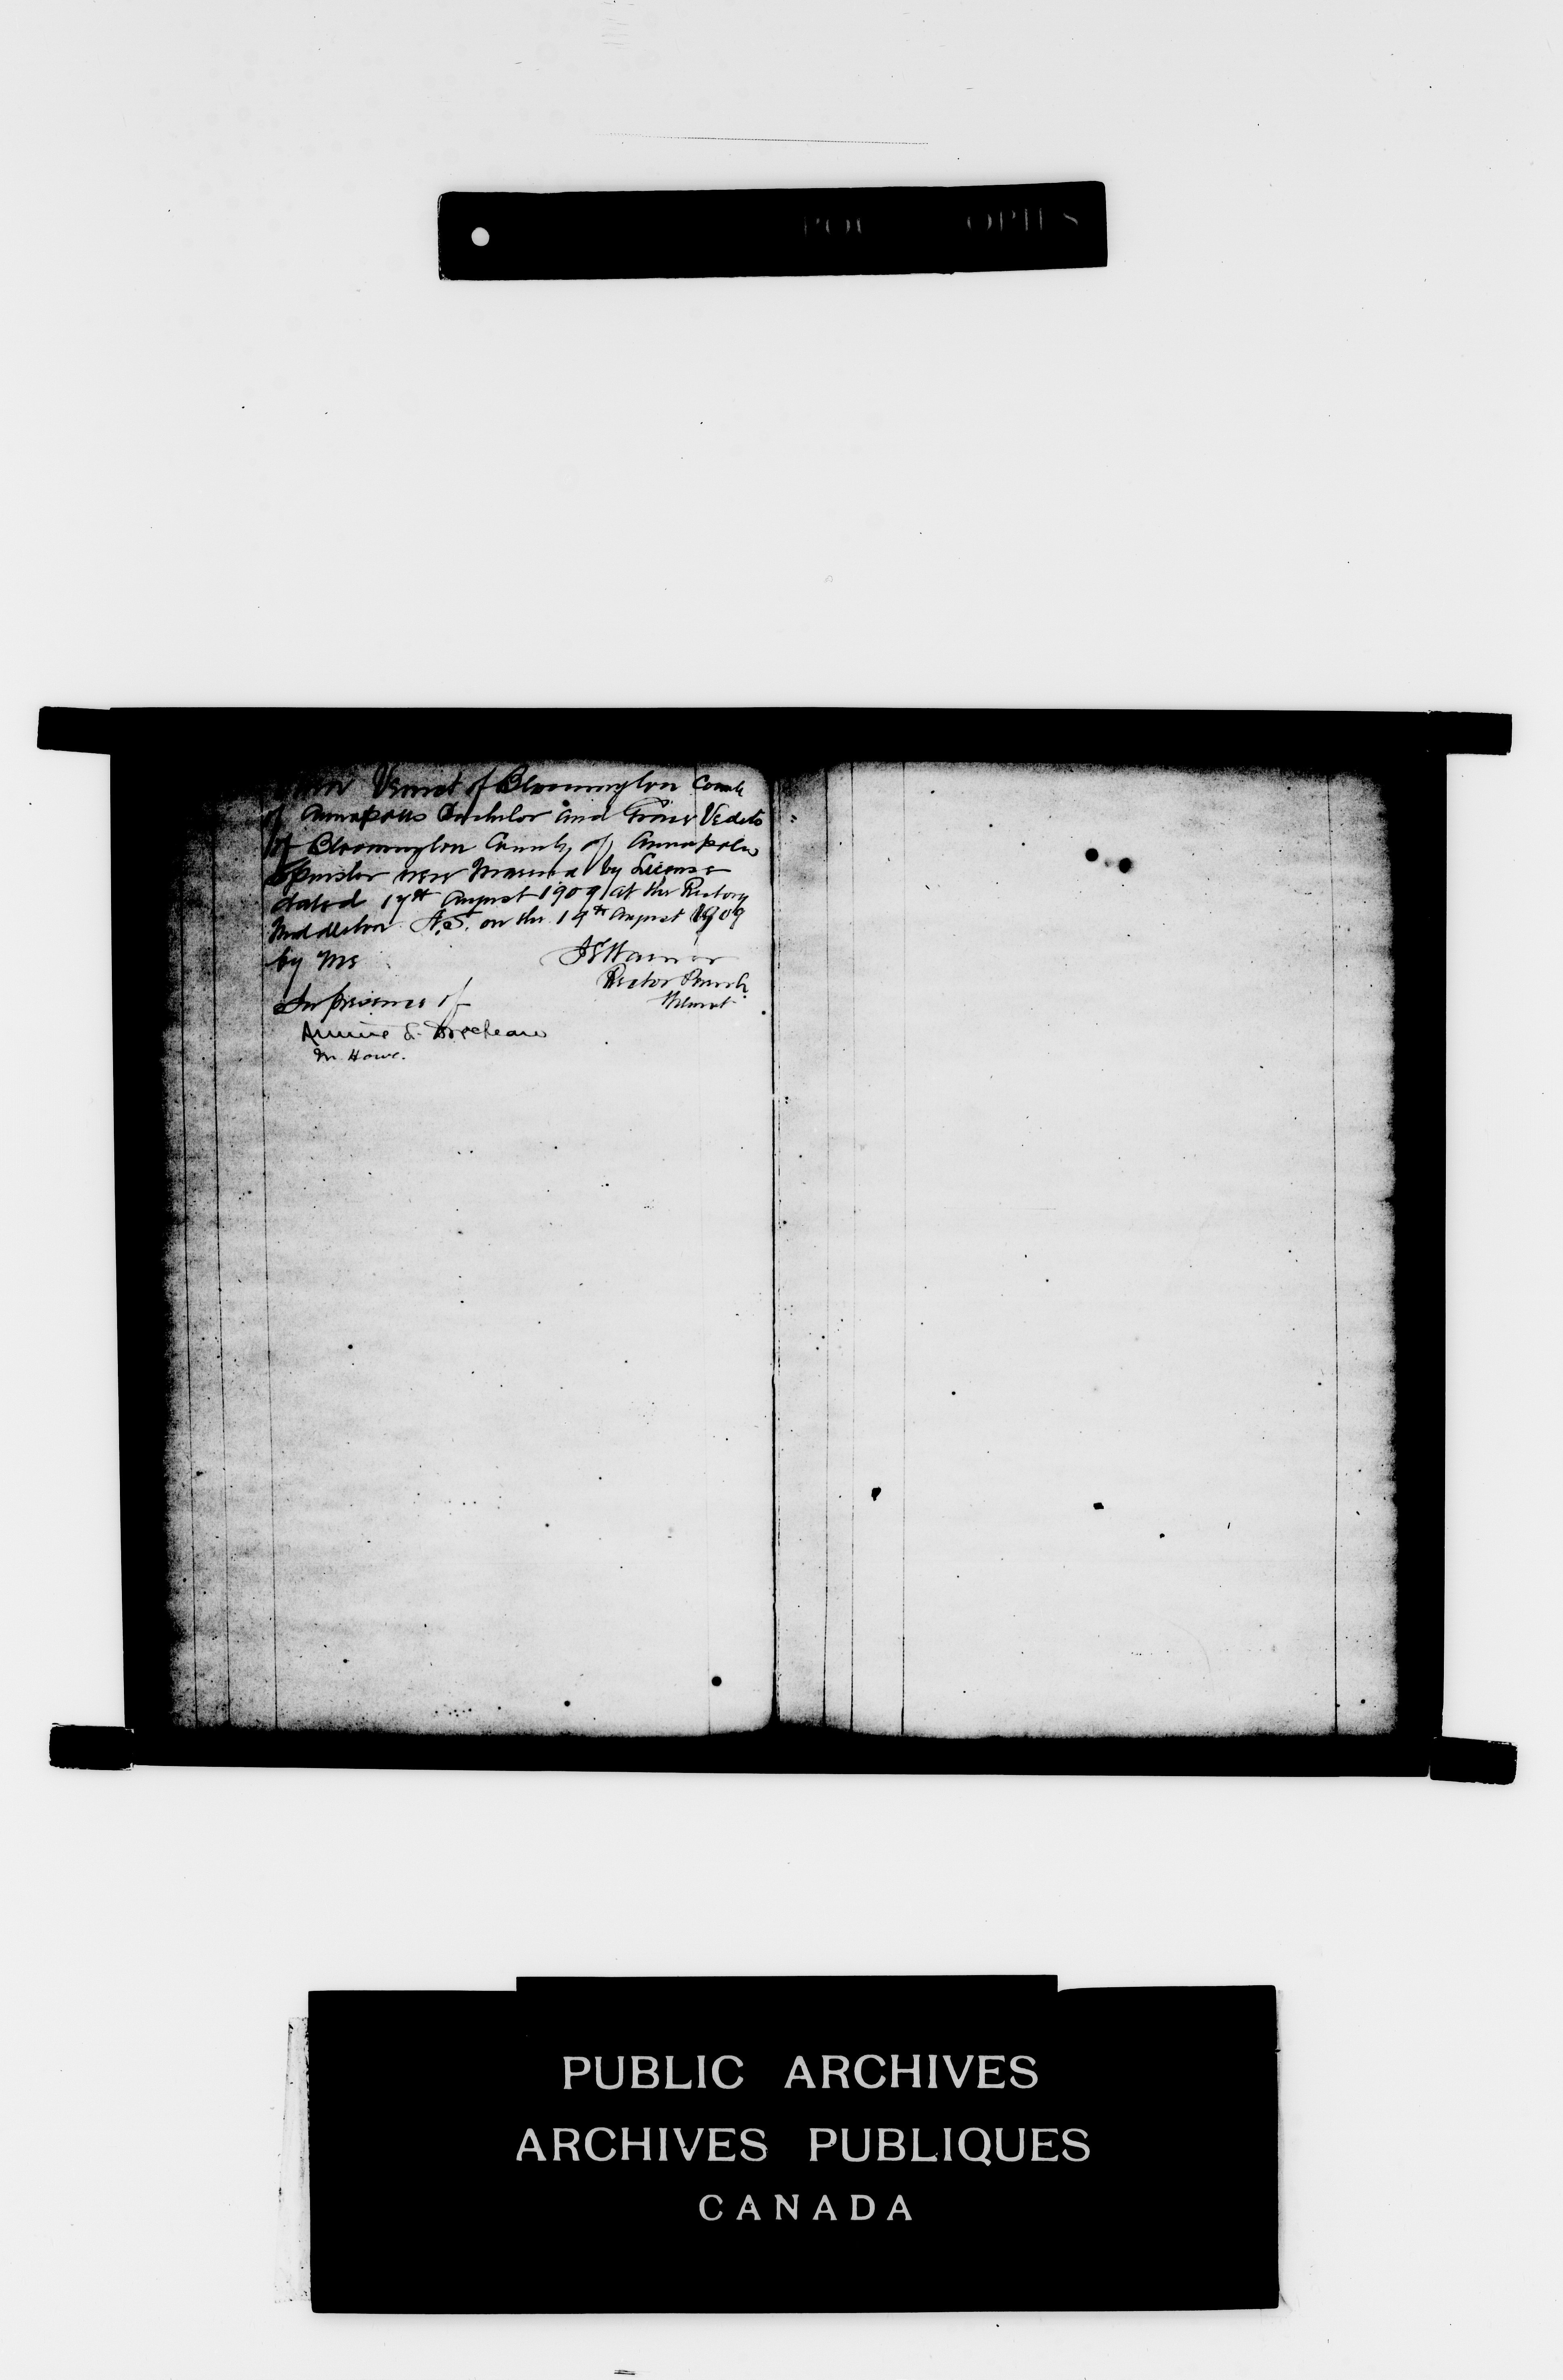 of Bloomington County
of Annapolis Bachelor and Vedito
of Bloomington County of Annapolis
Spinster were Married by License
dated 17th August 1909 at the Rectory
Middleton N.S. on the August 1909
by Me
Rector Parish
Wilmot
In presence of
Annie E.
M. Howe.
PUBLIC ARCHIVES
ARCHIVES PUBLIQUES
CANADA